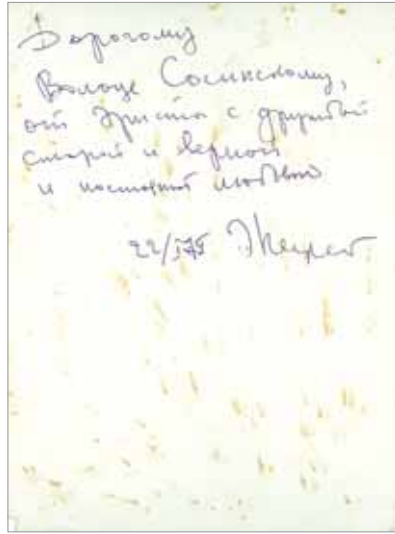 Дорогому
Володе Сосинскому,
от Эрнста с дружбой
старой и верной
и постоянной любовью
22/